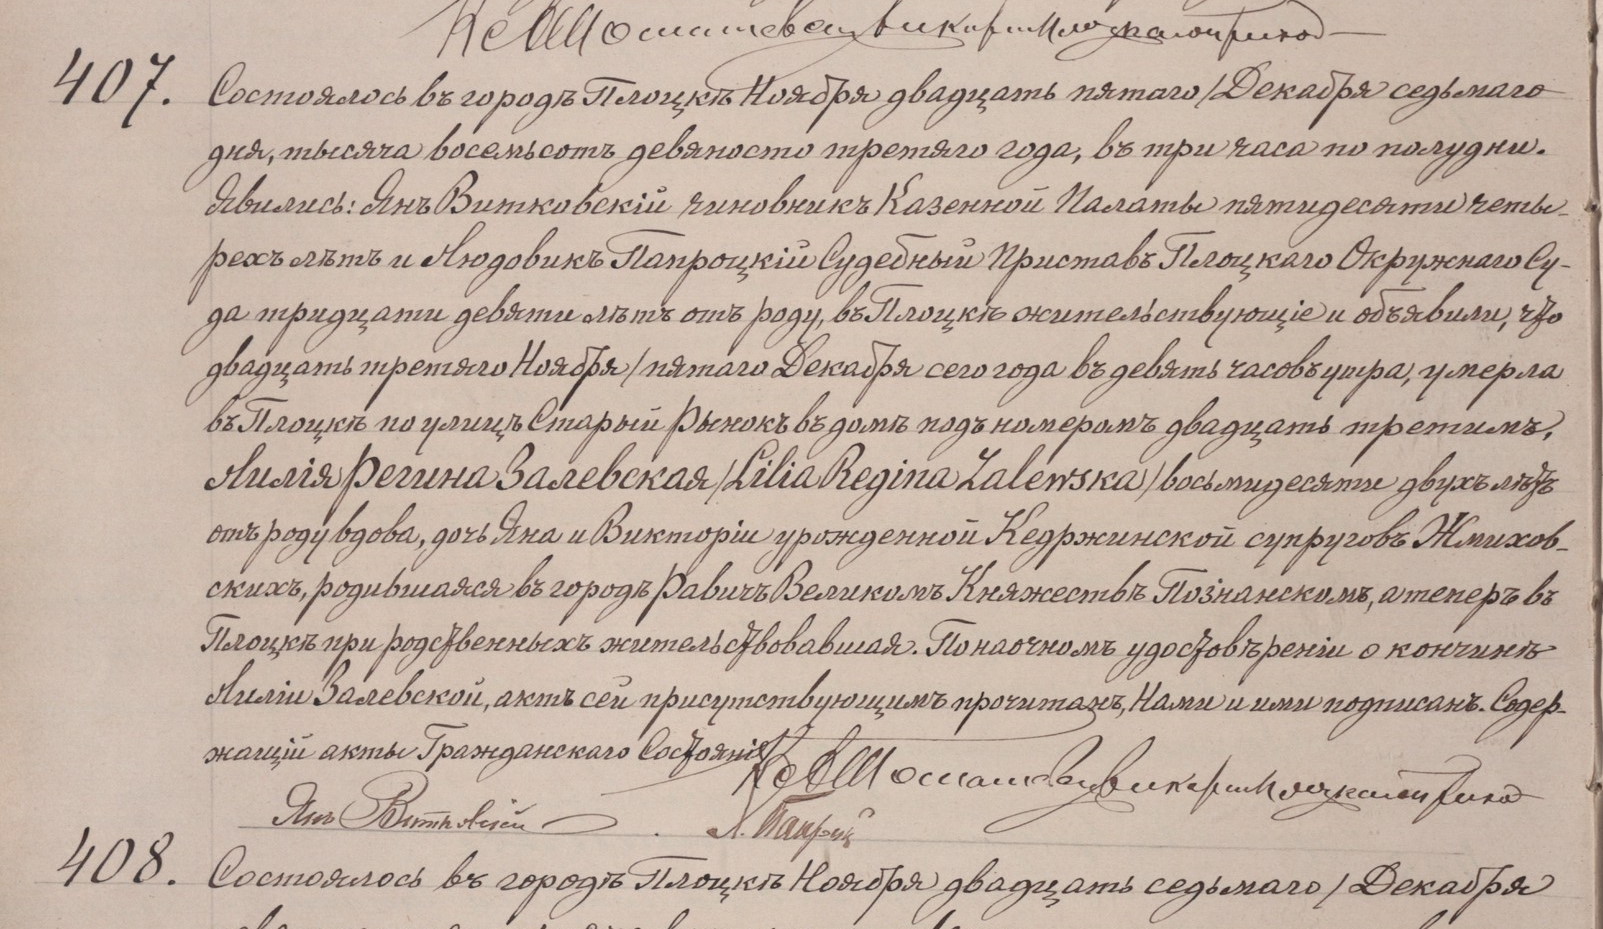 407. Состоялось въ городѣ Плоцкѣ Ноября двадцать пятаго / Декабря седьмаго
дня, тысяча восемьсотъ девяносто третяго года, въ три часа по полудни.
Явились: Янъ Витковскій чиновникъ Казенной Палаты пятидесяти четы-
рехъ лѣтъ и Людовикъ Папроцкій Судебный Приставъ Плоцкаго Окружнаго Су-
да тридцати девяти лѣтъ отъ роду, въ Плоцкѣ жительствующіе и объявили, что
двадцать третяго Ноября / пятаго Декабря сего года въ девять часовъ утра, умерла
въ Плоцкѣ по улицѣ Старый Рынокъ въ домѣ подъ номеромъ двадцать третимъ,
Лилія Регина Залевская /Lilia Regina Zalewska/ восьмидесяти двухъ лѣтъ
отъ роду вдова, дочь Яна и Викторіи урожденной Кедржинской супруговъ Жмихов-
скихъ, родившаяся въ городѣ Равичъ Великомъ Княжествѣ Познанскомъ, а теперъ въ
Плоцкѣ при родственныхъ жительствовавшая. По наочномъ удостовѣреніи о кончинѣ
Лиліи Залевской, актъ сей присутствующимъ прочитанъ, Нами и ими подписанъ. Содер-
жащій акты Гражданскаго Состоянія
Янъ Витковскій Л. Папроц
408. Состоялось въ городѣ Плоцкѣ Ноября двадцать седьмаго / Декабря